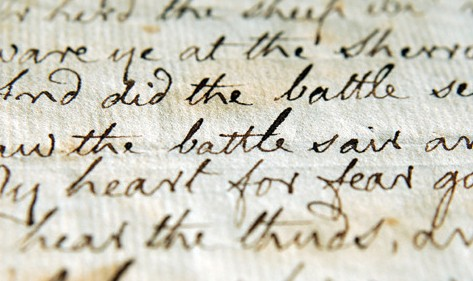 herd the sheep
ware ye at the Sherri
And did the battle se
aw the battle sair an
My heart for fear ga
hear the thuds, an